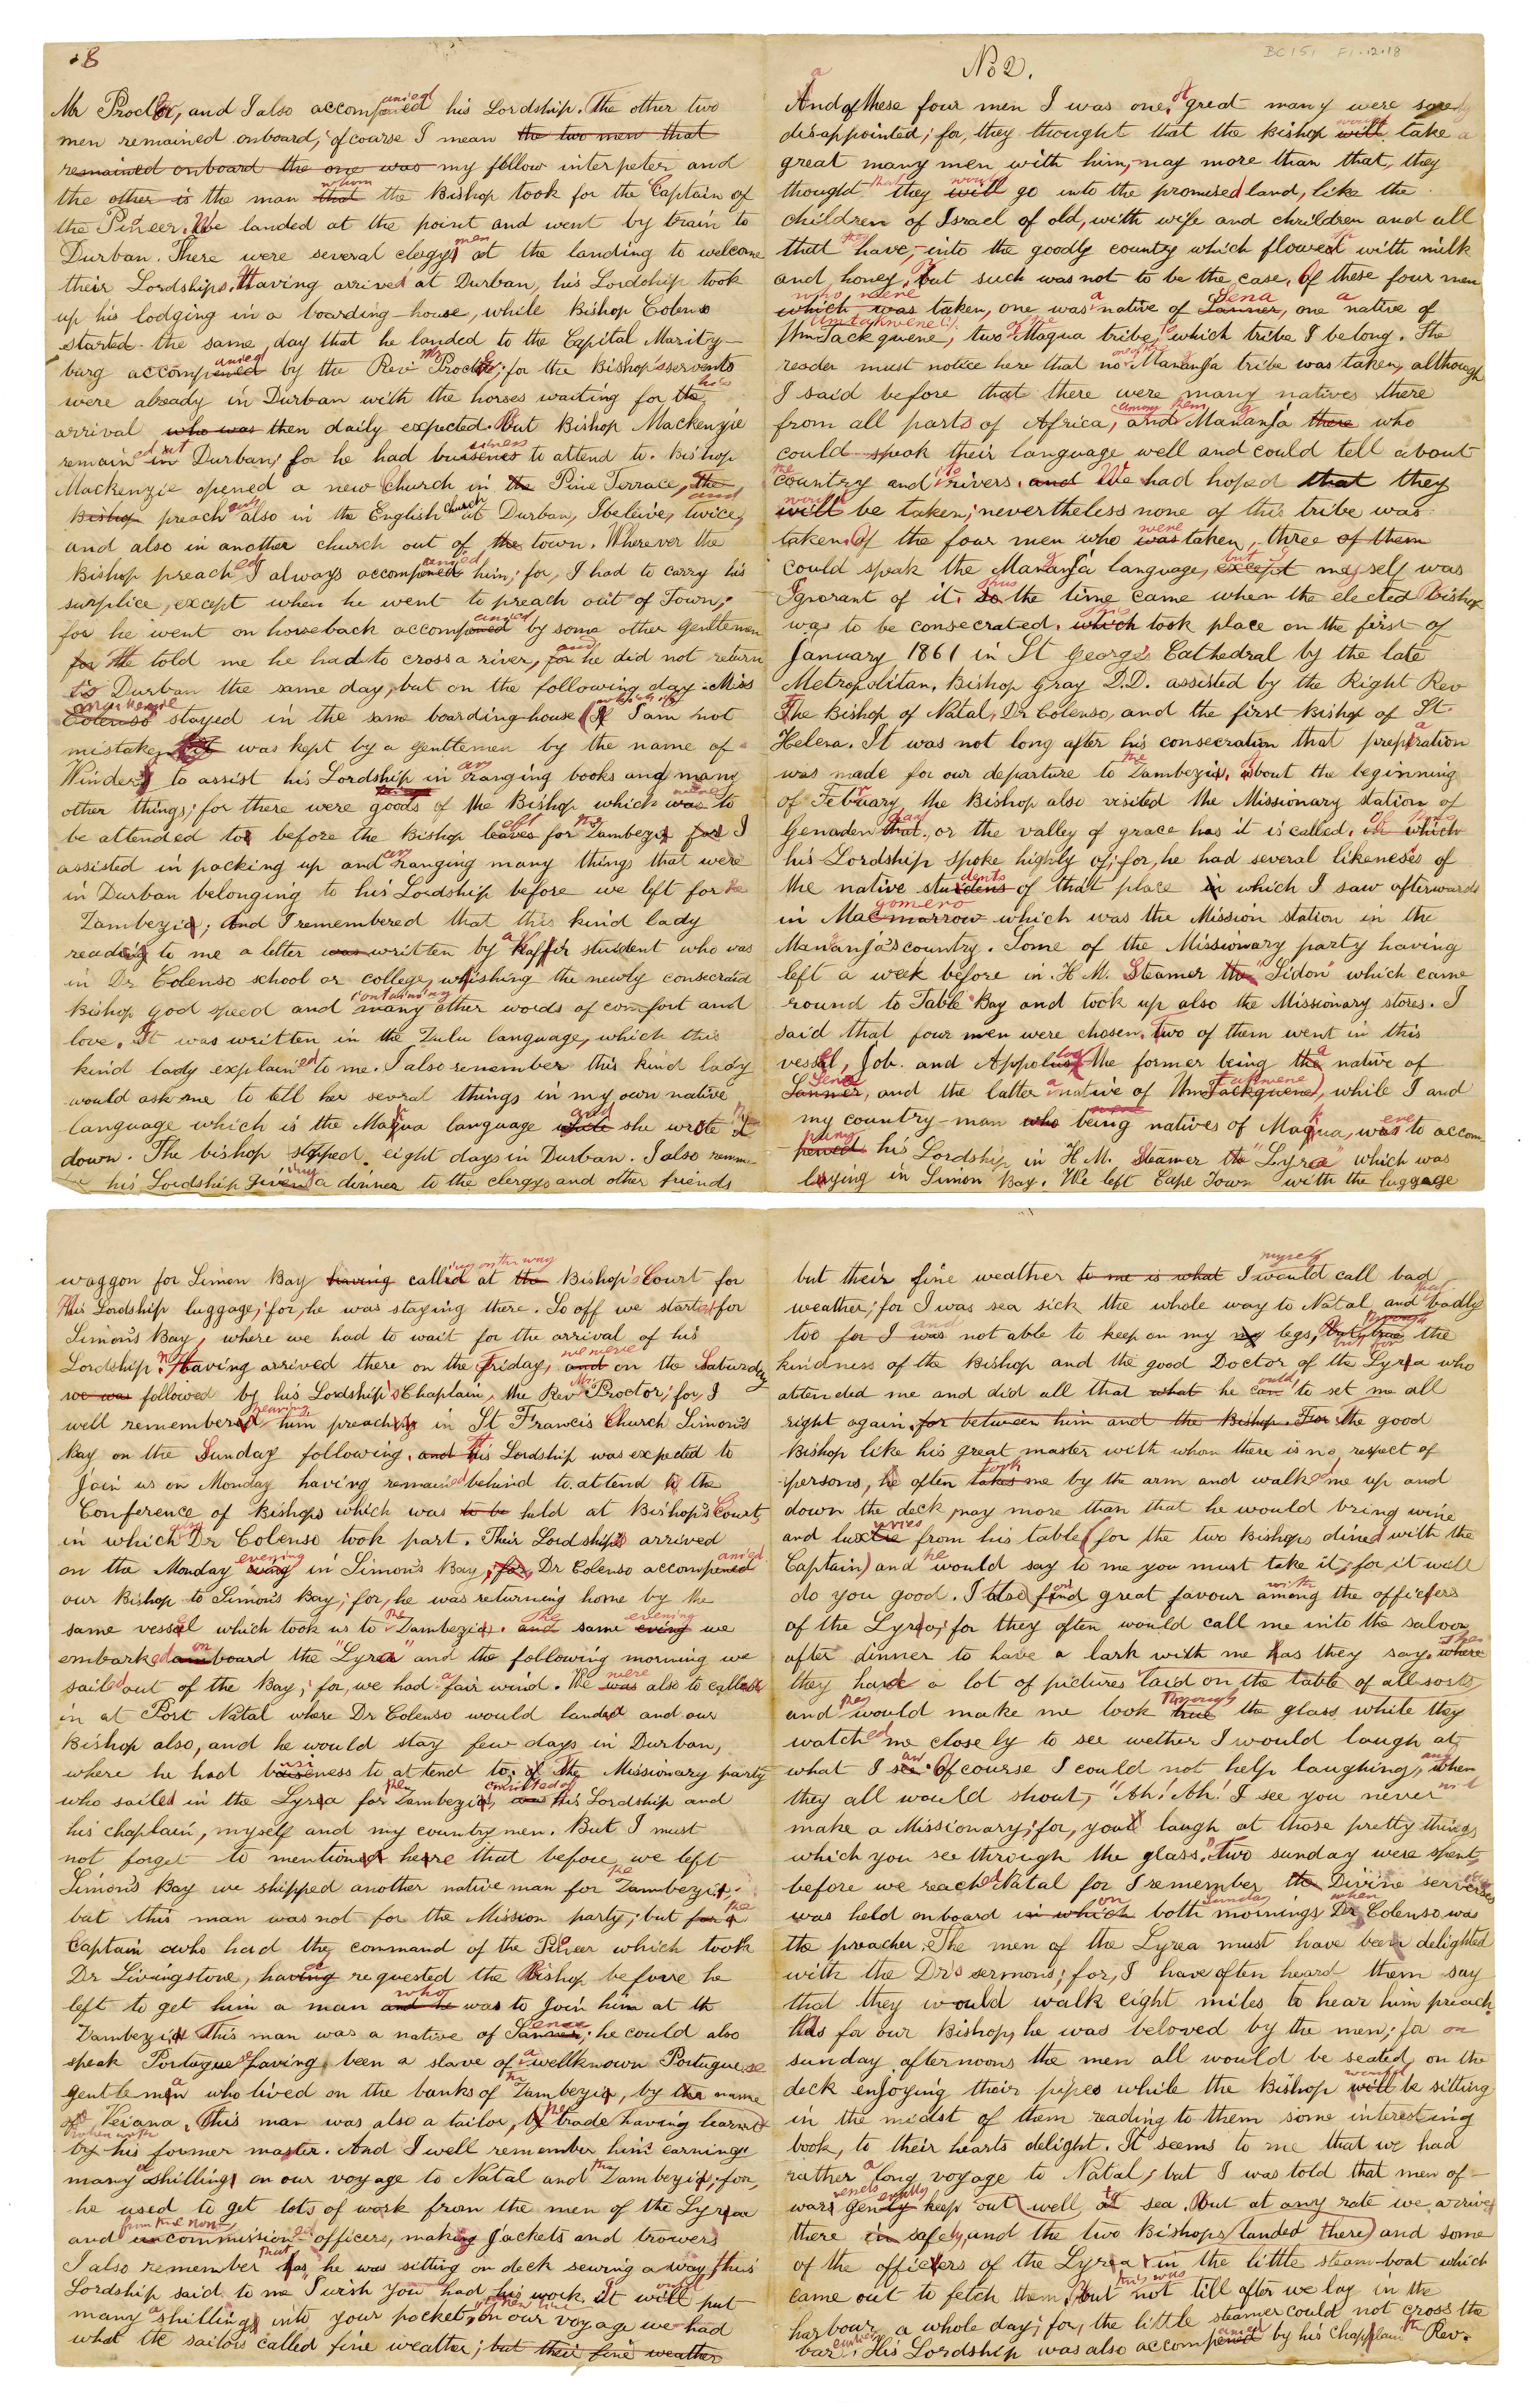 8
Mr Procter, and I also accompanied his Lordship. The other two
men remained onboard, of course I mean the two men that
remained onboard the one was my fellow interpeter and
the other is the man that whom the Bishop took for the Captain of
the Pioneer. We landed at the point and went by train to
Durban. There were several clergymen at the landing to welcome
their Lordships. Having arrived at Durban, his Lordship took
up his lodging in a boarding-house, while Bishop Colenso
started the same day that he landed to the Capital Maritz-
burg accompanied by the Rev Mr Procter; for the Bishop's servents
were already in Durban with the horses waiting for the his
arrival who was then daily expected. But Bishop Mackenzie
remained in at Durban, for he had buisness to attend to. Bishop
Mackenzie opened a new Church in the Pine Terrace, the and
Bishop preached also in the English church at Durban, I beleive, twice,
and also in another church out of the town. Wherever the
Bishop preached I always accompanied him; for, I had to carry his
surplice, except when he went to preach out of Town;
for he went on horseback accompanied by some other Gentlemen
for He told me he had to cross a river, for and he did not return
to Durban the same day, but on the following day. Miss
Colenso Mackenzie stayed in the same boarding-house (If I am not
mistaken was kept by a gentlemen by the name of
Winder) to assist his Lordship in arranging books and many
other things; for there were goods of the Bishop which was were to
be attended to before the Bishop leaves left for the Zambezi for I
assisted in packing up and arranging many things that were
in Durban belonging to his Lordship before we left for the
Zambezi; And I remembered that this kind lady
reading to me a letter was written by a Kaffir student who was
in Dr Colenso school or college, whishing the newly consecraid
Bishop god speed and containing many other words of comfort and
love. It was written in the Zulu language, which this
kind lady explained to me. I also remember this kind lady
would ask me to tell her sevral things in my own native
language which is the Makua language while and she wrote it
down. The bishop stopped eight days in Durban. I also remem-
his Lordship giving a dinner to the clergys and other friends
No 2.
BC151 F1.12.18
And of these four men I was one, A great many were sorely
disappointed; for, they thought that the Bishop will would take a
great many men with him, nay more than that, they
thought that they will would go into the promised land, like the
children of Israel of old, with wife and chrildren and all
that they have, into the goodly country which flowed with milk
and honey, but such was not to be the case. Of these four men
which was who were taken, one was a native of Sanner Sena, one a native of
UmTackquene, two of the Maqua tribe, to which tribe I belong. The
reader must notice here that no one of the Mananja tribe was taken, although
I said before that there were many natives there
from all parts of Africa, and among them Mananja there who
could speak their language well and could tell about
the country and its rivers. and We had hoped that they
will would be taken; nevertheless none of this tribe was
taken. Of the four men who was were taken, three of them
could speak the Mananja language, except but I myself was
Ignorant of it. So Thus the time came when the elected Bishop
was to be consecrated. which This took place on the first of
January 1861 in St George's Cathedral by the late
Metropolitan. Bishop Gray D.D. assisted by the Right Rev
The Bishop of Natal, Dr Colenso, and the first Bishop of St.
Helena. It was not long after his consecration that preparation
was made for our departure to the Zambezi, about the beginning
of February, the Bishop also visited the Missionary station of
Genadendaal, or the valley of grace has it is called. in which of this
his Lordship spoke highly of; for, he had several likenesses of
the native students of that place in which I saw afterwards
in Magomero which was the Mission station in the
Mananja's country. Some of the Missionary party having
left a week before in H.M. Steamer the "Sidon" which came
round to Table Bay and took up also the Missionary stores. I
said that four men were chosen. Two of them went in this
vessel, Job. and Appollos the former being the a native of
Sanner Sena, and the latter a native of UmTackquene, while I and
my country-man who being natives of Makua, was were to accom-
pany his Lordship in H.M. Steamer the "Lyra" which was
laying in Simon Bay. We left Cape Town with the luggage
waggon for Simon Bay having calling on the way at the Bishop's Court for
His Lordship luggage; for, he was staying there. So off we started for
Simon's Bay, where we had to wait for the arrival of his
Lordship. Having arrived there on the Friday, and on the Saturday
we was we were followed by his Lordship's Chaplain, the Rev Mr Procter; for, I
well remember hearing him preaching in St Francis Church Simon's
Bay on the Sunday following. and His Lordship was expected to
Join us on Monday having remained behind to attend to the
Conference of Bishops which was to be held at Bishop's Court,
in which Dr Colenso took part. Their Lordships arrived
on the Monday eving evening in Simon's Bay, for, Dr Colenso accompanied
our Bishop to Simon's Bay; for, he was returning home by the
same vessel which took us to the Zambezi. and The same eving evening we
embarked on board the "Lyra" and the following morning we
sailed out of the Bay; for, we had a fair wind. We was were also to call
in at Port Natal where Dr Colenso would land and our
Bishop also, and he would stay few days in Durban,
where he had business to attend to; of The Missionary party
who sailed in the Lyra for the Zambezi, was consisted of his Lordship and
his chaplain, myself and my country men. But I must
not forget to mention here that before we left
Simon's Bay we shipped another native man for the Zambezi;
but this man was not for the Mission party; but for the
Captain who had the command of the Pioneer which took
Dr Livingstone, having requested the Bishop before he
left to get him a man and he who was to Join him at th
Zambezi. This man was a native of Sanner Sena; he could also
speak Portuguese having been a slave of a wellknown Portuguese
gentleman who lived on the banks of the Zambezi, by the name
of Veiana. This man was also a tailor, by trade having learned
by his former master. And I well remember him earning
many a shilling on our voyage to Natal and the Zambezi, for,
he used to get lots of work from the men of the Lyra
and from the non commissioned officers, making Jackets and trowers
I also remember that has he was sitting on deck sewing away, his
Lordship said to me I wish you had his work it will would put
many a shilling into your pocket, on our voyage we had
what the sailors called fine weather; but their fine weather
but their fine weather to me is what I myself would call bad
weather; for I was sea sick the whole way to Natal and that badly
too for I was and not able to keep on my my legs, but true through the
kindness of the Bishop and the good Doctor of the Lyra who
attended me and did all that what he can could to set me all
right again. for between him and the Bishop. For the good
Bishop like his great master with whom there is no respect of
persons, he often takes took me by the arm and walked me up and
down the deck, nay more than that he would bring wine
and luxuries from his table (for the two Bishops dined with the
Captain) and he would say to me you must take it; for, it will
do you good. I also found great favour among with the officers
of the Lyra, for they often would call me into the saloon
after dinner to have a lark with me has they say, where Then
they had a lot of pictures laid on the table of all sorts
and they would make me look true through the glass while they
watched me closely to see wether I would laugh at
what I saw. Of course I could not help laughing, and when
they all would shout, "Ah! Ah! I see you never will
make a Missionary; for, you'd laugh at those pretty things
which you see through the glass". Two sunday were spent,
before we reached Natal for I remember the Divine services
was held onboard in which on both sunday mornings when Dr Colenso was
the preacher. The men of the Lyrea must have been delighted
with the Dr's sermons; for, I have often heard them say
that they would walk eight miles to hear him preach.
As for our Bishop, he was beloved by the men; for on
sunday afternoons the men all would be seated on the
deck enjoying their pipes while the Bishop will would be sitting
in the midst of them reading to them some interesting
book, to their hearts delight. It seems to me that we had
rather a long voyage to Natal, but I was told that men of
war vessels generally keep out well at to sea. But at any rate we arrived
there in safely, and the two Bishops (landed there) and some
of the officers of the Lyra in the little steam-boat which
came out to fetch them, But this was not till after we lay in the
harbour a whole day; for, the little steamer could not cross the
bar. His Lordship was also accompanied by his Chaplain the Rev.